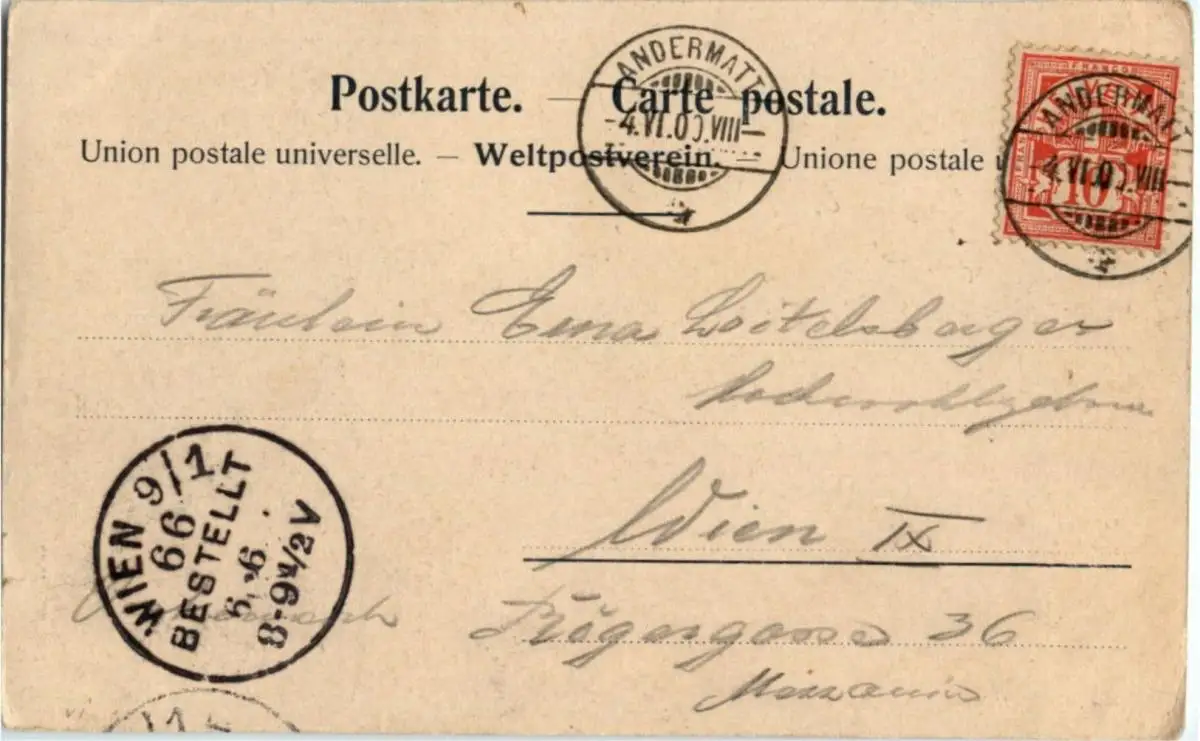 Postkarte. — Carte postale.
Union postale universelle. — Weltpostverein. — Unione postale
ANDERMATT
-4.VI.00.VIII-
FRANCO
ANDERMATT
-4.VI.00.VIII
10
Fräulein Erna Loitelsberger
Wien IX
36
Mezzanin
WIEN 9/1
66
BESTELLT
6.6
8-9½V